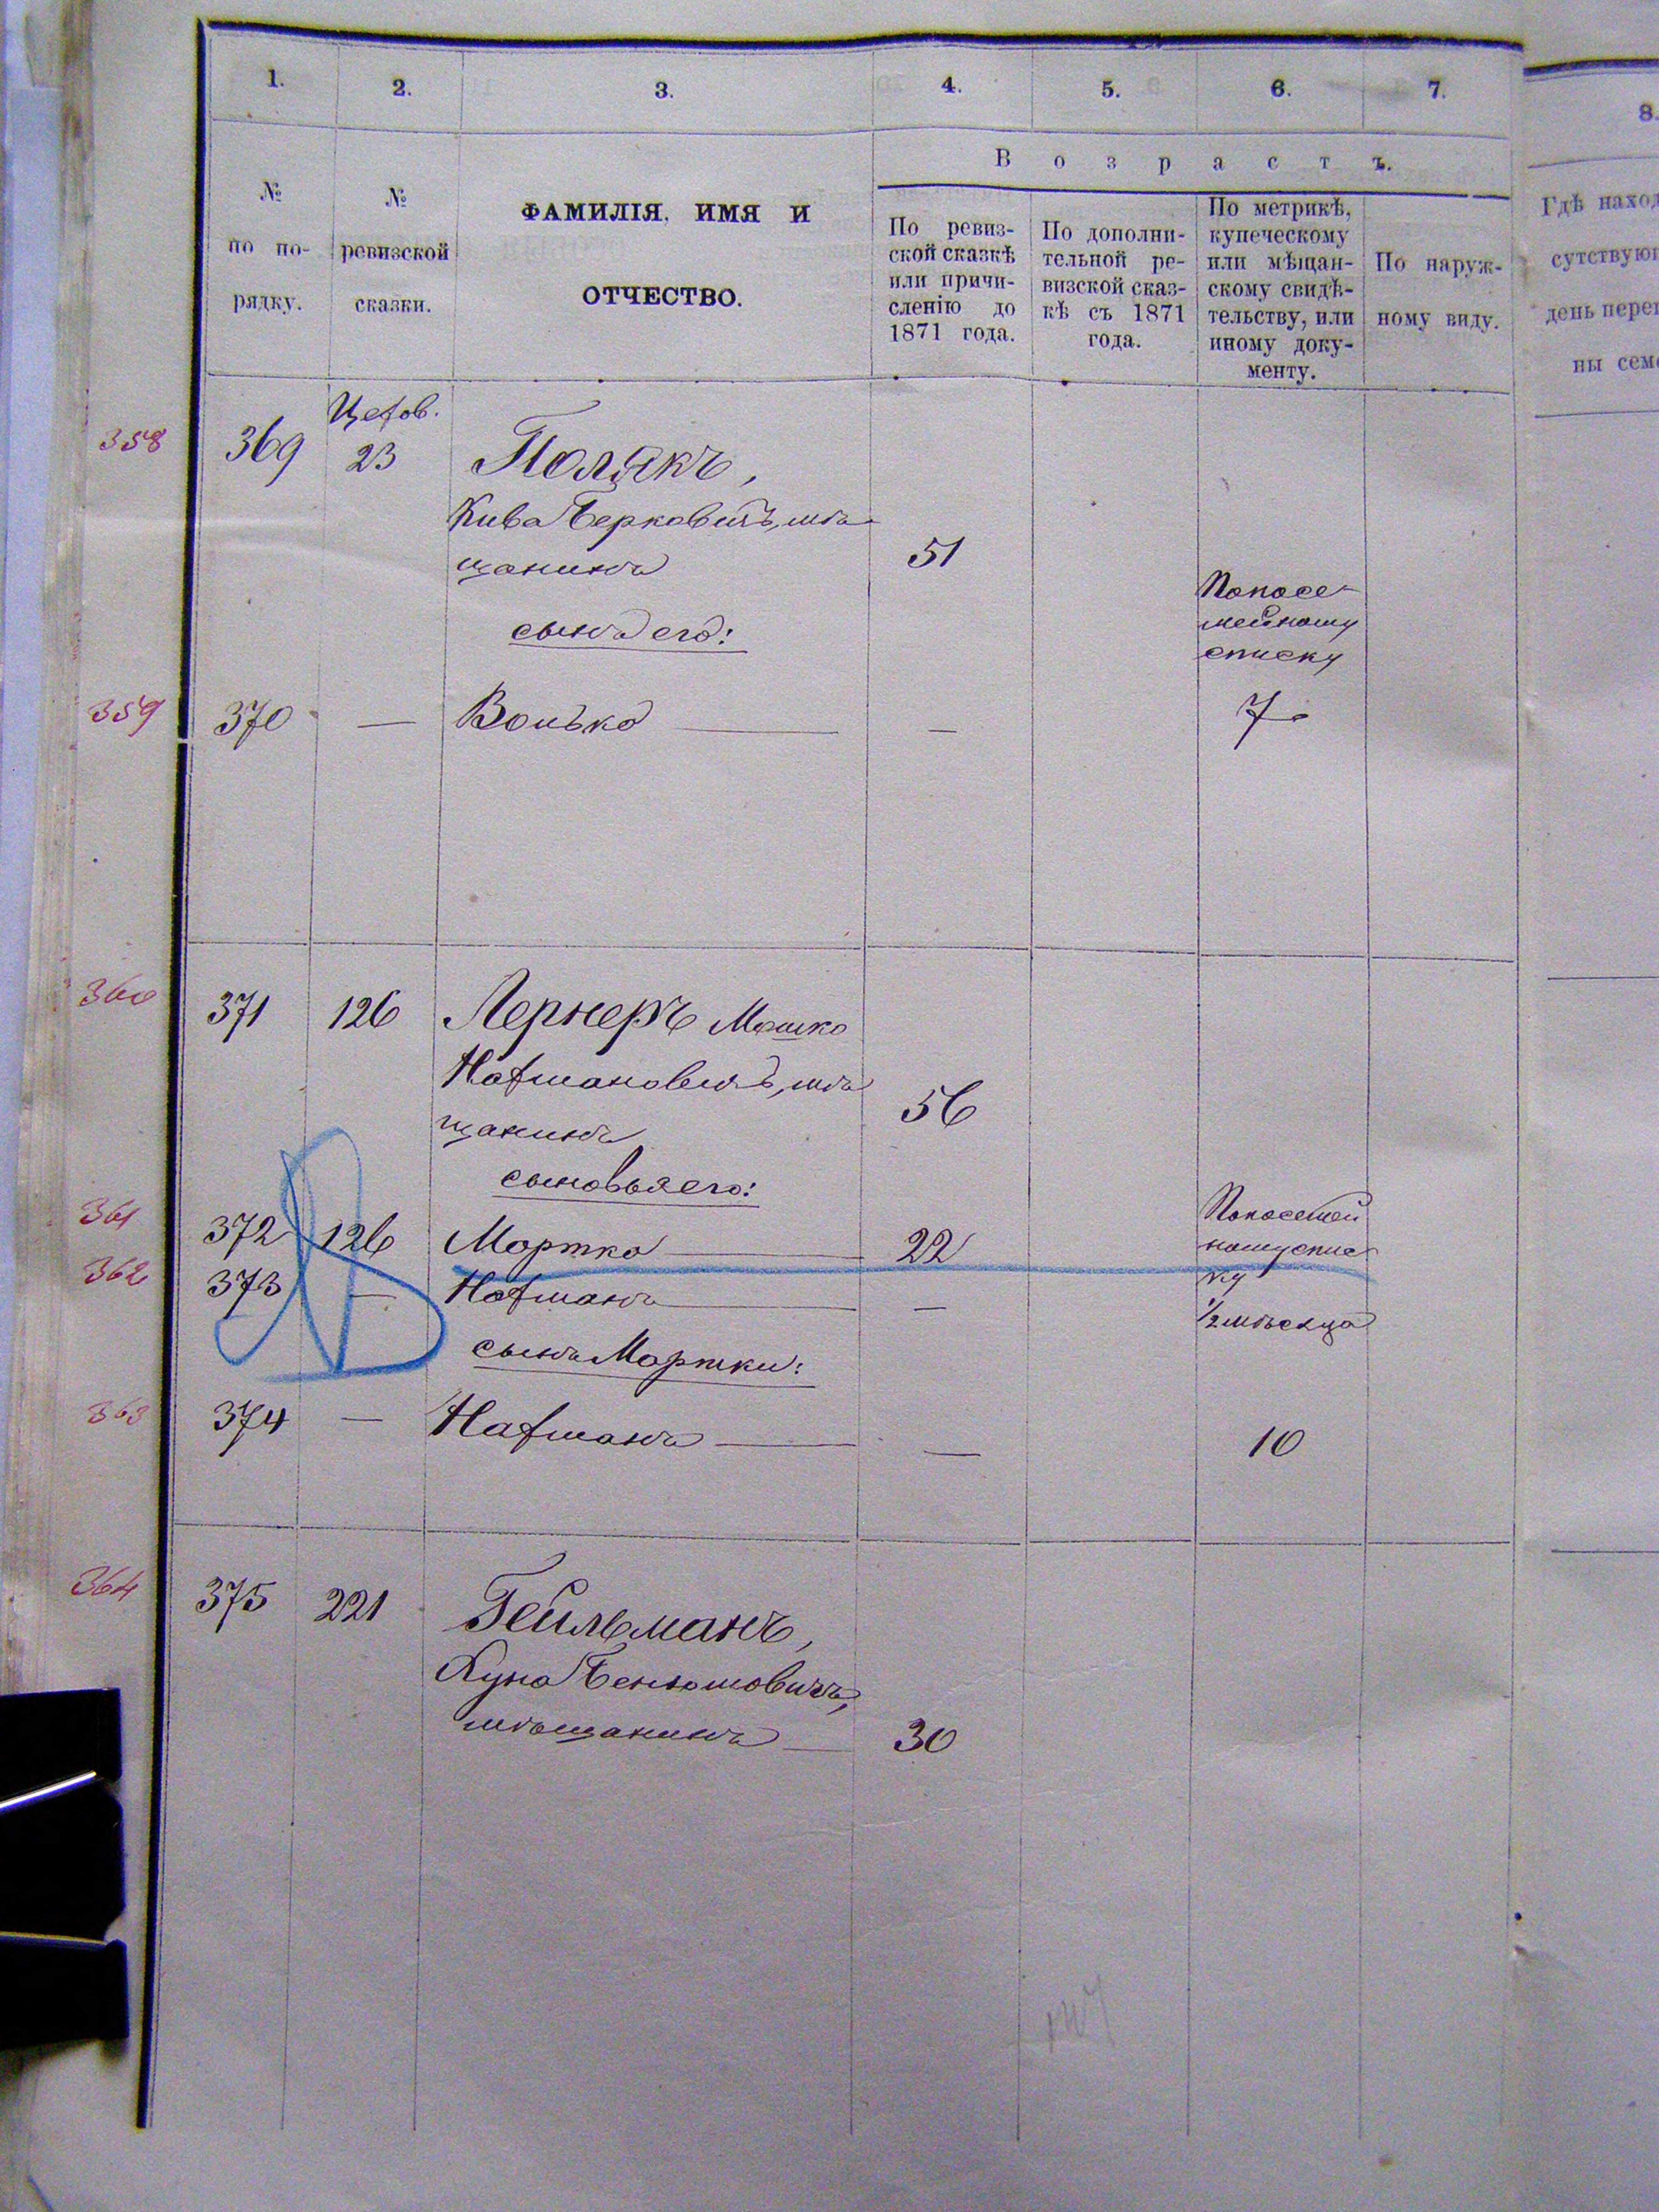 1. 2. 3. 4. 5. 6. 7. 8.
В о з р а с т ъ.
№ по по-рядку.
№ ревизской сказки.
ФАМИЛІЯ, ИМЯ И
ОТЧЕСТВО.
По ревиз-
ской сказкѣ
или причи-
сленію до
1871 года.
По дополни-
тельной ре-
визской сказ-
кѣ съ 1871
года.
По метрикѣ,
купеческому
или мѣщан-
скому свидѣ-
тельству, или
иному доку-
менту.
По наруж-
ному виду.
Гдѣ наход
сутствую
день пере
ны сем
358 369 23 Полякъ,
Кива Берковичъ, мѣ
щанинъ 51
сынъ его:
Попосе-
мейному
списку
359 370 — Вонько — — 7
360 371 126 Лернеръ Мошко
Нафтановичъ, мѣ
щанинъ 56
сыновья его:
361 372 126 Мортко — 22
Попосемей
ному спис
ку
362 373 — Нафманъ — — ½ мѣсяца
сынъ Мортки:
363 374 — Нафманъ — — 10
364 375 221 Гейльманъ,
Хуна Бенюмовичъ,
мѣщанинъ — 30